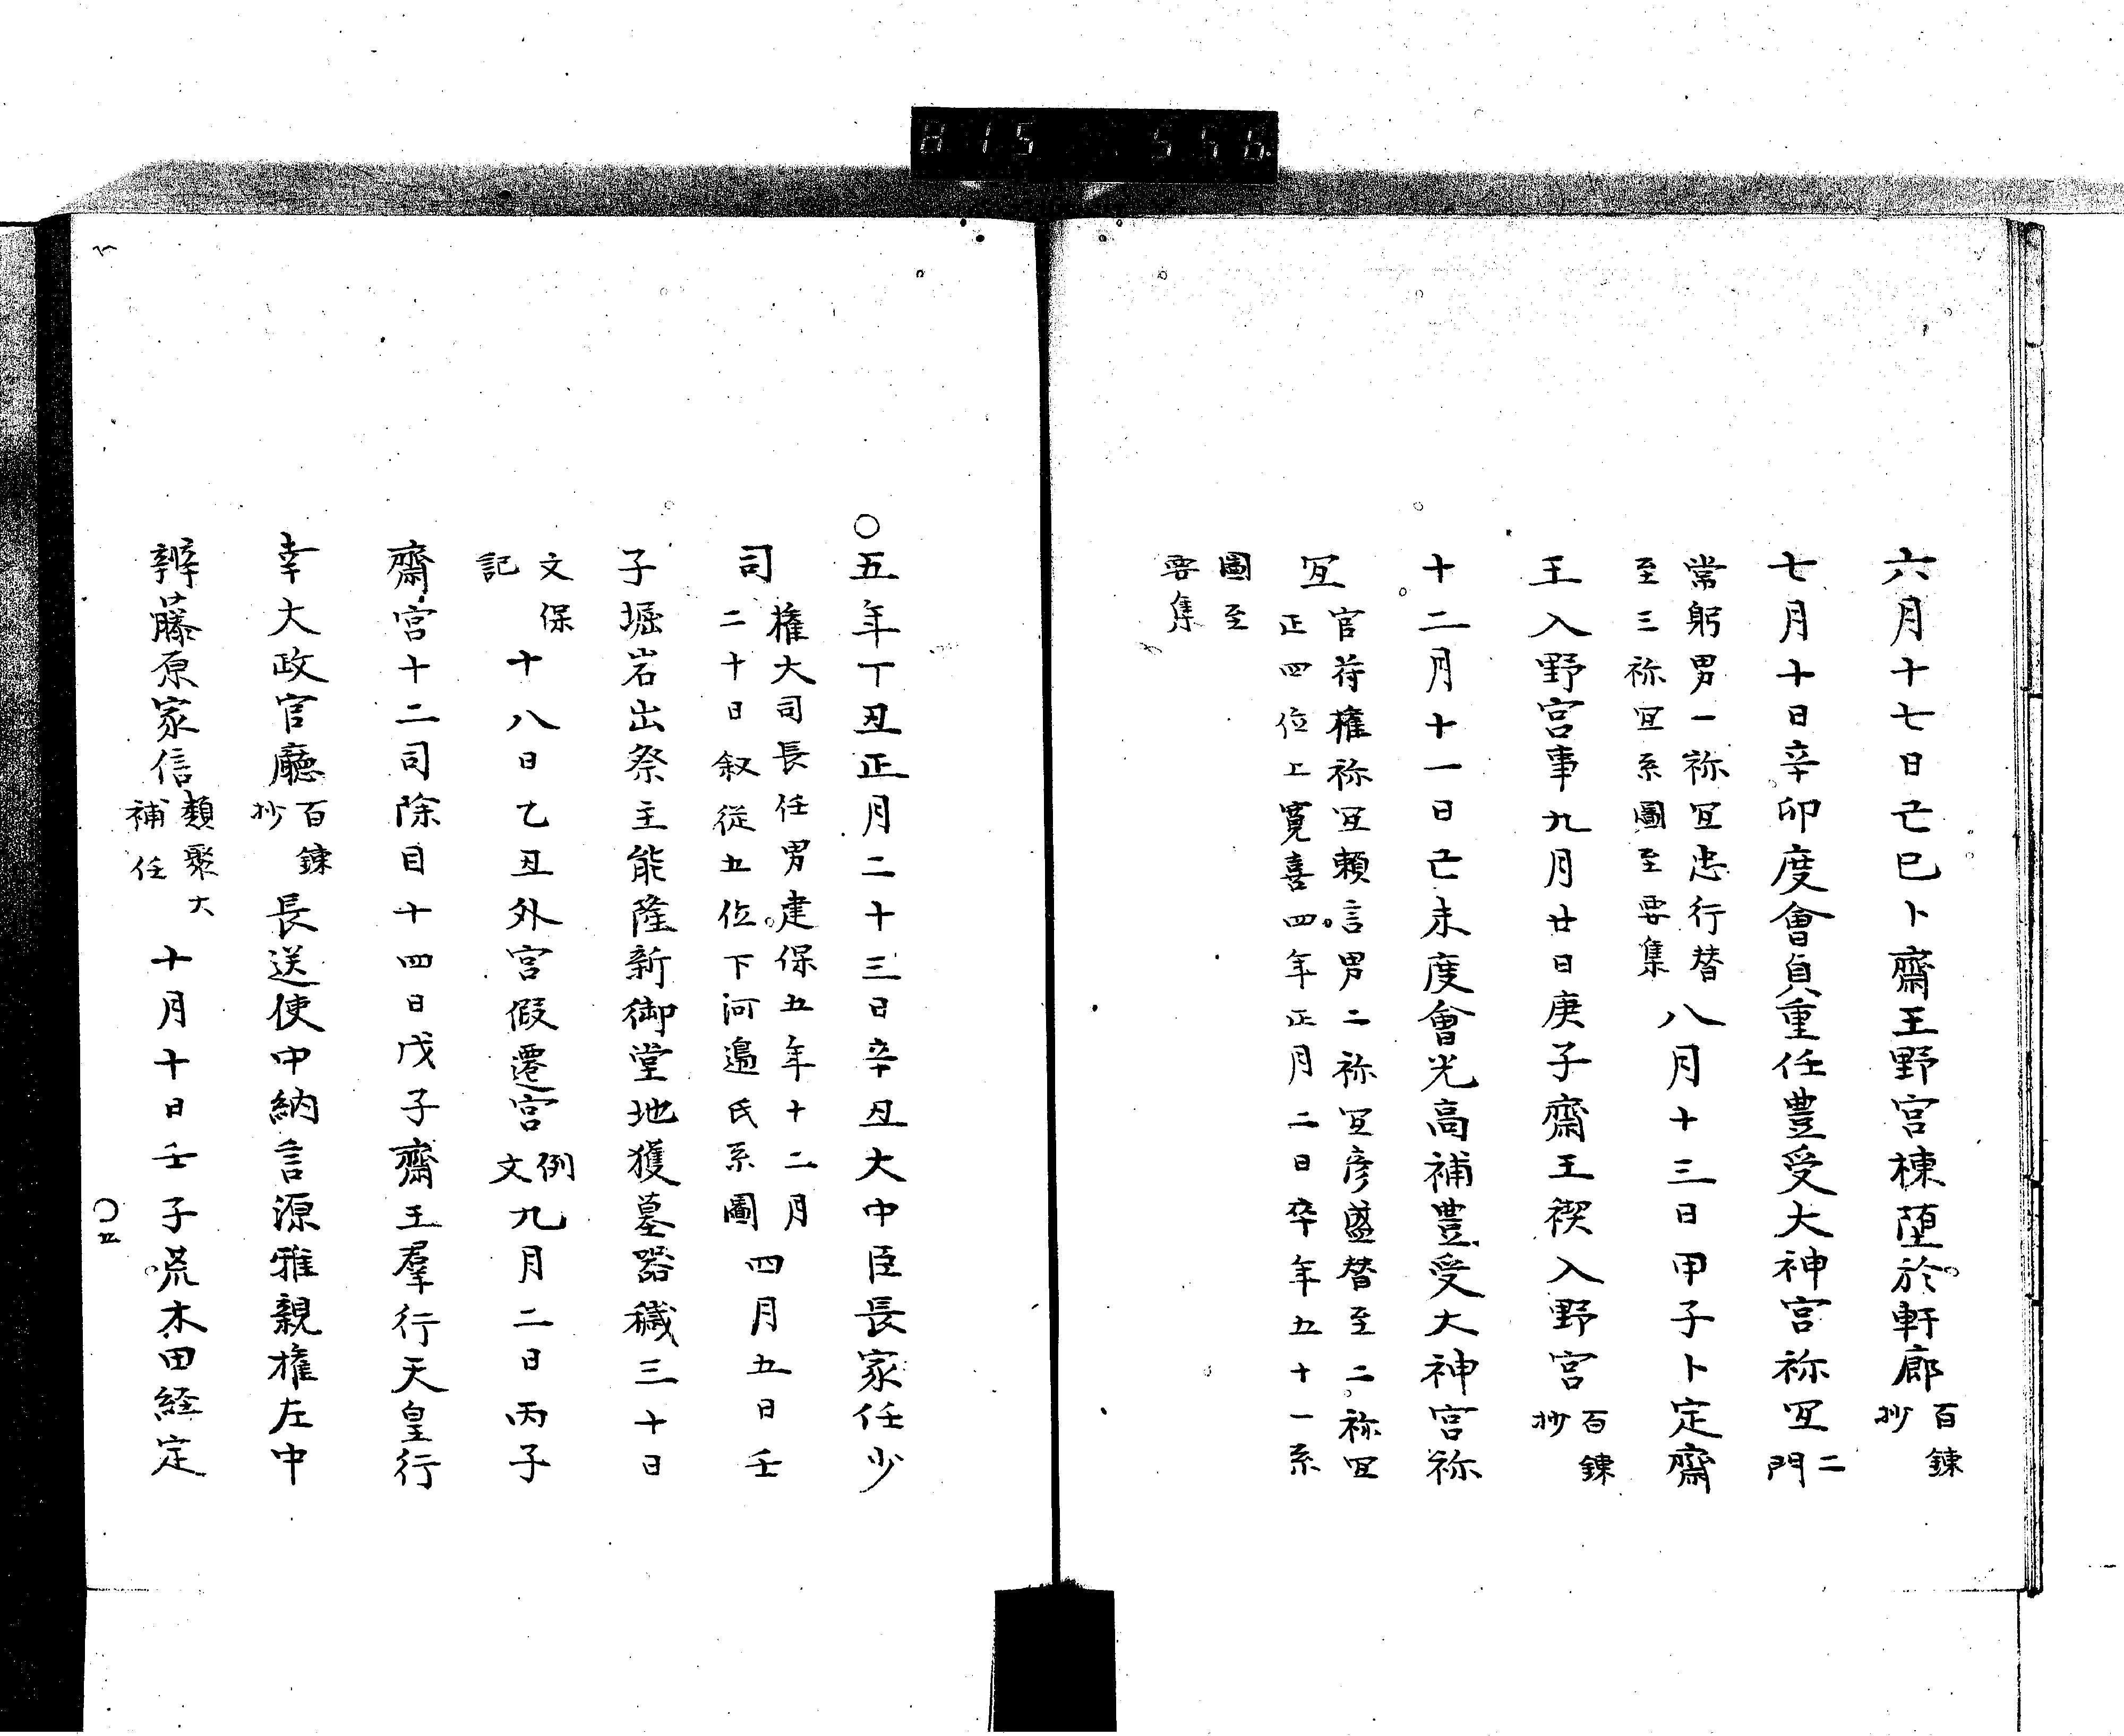 815 556
六月十七日己巳卜齋王野宮棟墮於軒廊百錬抄
七月十日辛卯度會貞重任豊受大神宮祢宜二門
常躬男一祢宜忠行替至三祢宜系圖至要集八月十三日甲子卜定齋
王入野宮事九月廿日庚子齋王禊入野宮百錬抄
十二月十一日己未度會光高補豊受大神宮祢
宜官苻権祢宜頼言男二祢宜彦盛替至二祢宜正四位上寛喜四年正月二日卒年五十一系
圖至要集
〇五年丁丑正月二十三日辛丑大中臣長家任少
司権大司長任男建保五年十二月二十日叙従五位下河邉氏系圖四月五日壬
子堀岩出祭主能隆新御堂地獲墓器穢三十日
文保記十八日乙丑外宮假遷宮例文九月二日丙子
齋宮十二司除目十四日戊子齋王羣行天皇行
幸大政官廳百錬抄長送使中納言源雅親権左中
辨藤原家信類聚大補任十月十日壬子荒木田経定